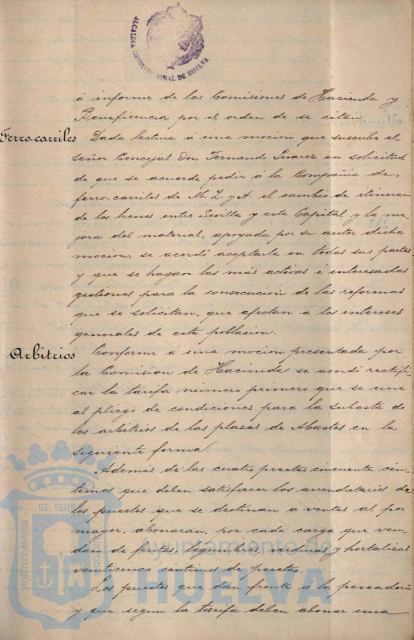 ALCALDIA CONSTITUCIONAL DE HUELVA
á informe de las Comisiones de Hacienda y
Beneficencia por el orden de se citan.
Ferro-carriles
Dada lectura á una mocion que suscribe el
Señor Concejal Don Fernando Suarez en solicitud
de que se acuerde pedir á la Compañia de
ferro-carriles de M. Z. y A. el cambio de itinerario
de los trenes entre Sevilla y esta Capital y la me
jora del material, apoyada por su autor dicha
mocion, se acordó aceptarla en todas sus partes
y que se hagan las más activas é interesadas
gestiones para la consecucion de las reformas
que se solicitan, que afectan á los intereses
generales de esta poblacion.
Arbitrios
Conforme á una mocion presentada por
la Comision de Hacienda se acordó rectifi
car la tarifa número primero que se une
al pliego de condiciones para la subasta de
los arbitrios de las plazas de Abastos en la
siguiente forma:
Además de las cuatro pesetas cincuenta cén
timos que deben satisfacer los arrendatarios de
los puestos que se destinan á ventas al por
mayor, abonaran, por cada carga que ven
dan de frutas, legumbres, verduras y hortalizas
veinticinco centimos de peseta.
Los puestos que dan frente á la pescaderia
y que segun la tarifa deben abonar una
PORTUS MARIS ET TERRÆ
Ayuntamiento de
HUELVA